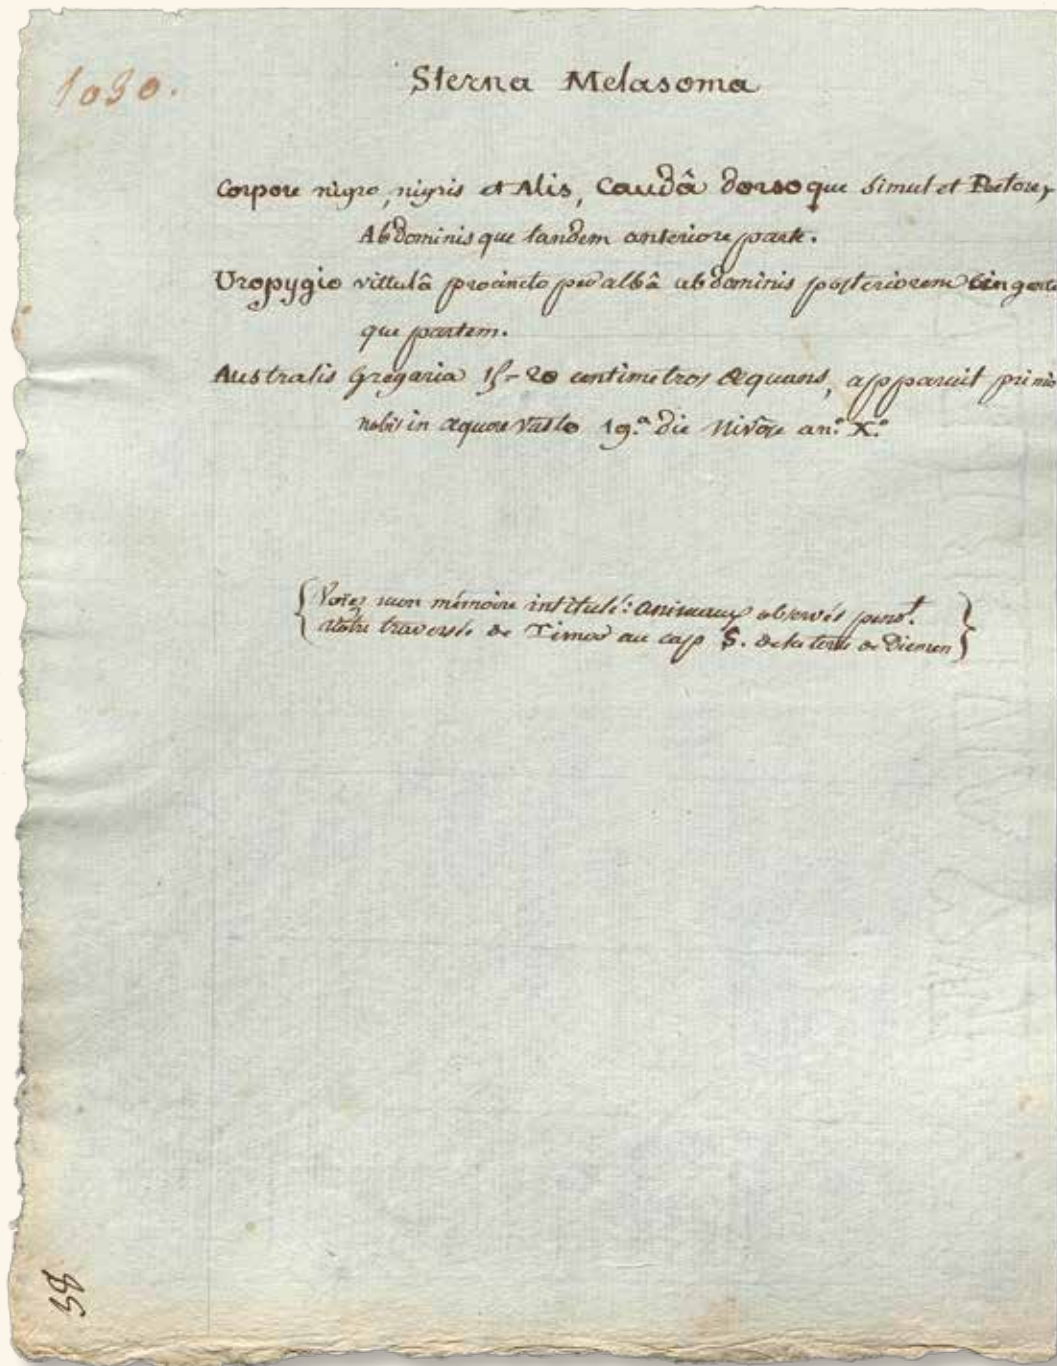 1030.
Sterna Melasoma
Corpore nigro, nigris et Alis, Caudâ dorsoque simul et Pectore,
Abdominisque tandem anteriore parte.
Uropygio vittulâ procincto per albâ abdominis posteriorem cingente
que partem.
Australis Gregaria 15-20 centimetros æquans, apparuit primo
nobis in æquore vasto 19.ª die Nivôse an.º X.º
{Voïez mon mémoire intitulé: animaux observés pend.t
notre traversée de Timor au cap S. de la terre de Diemen}
38